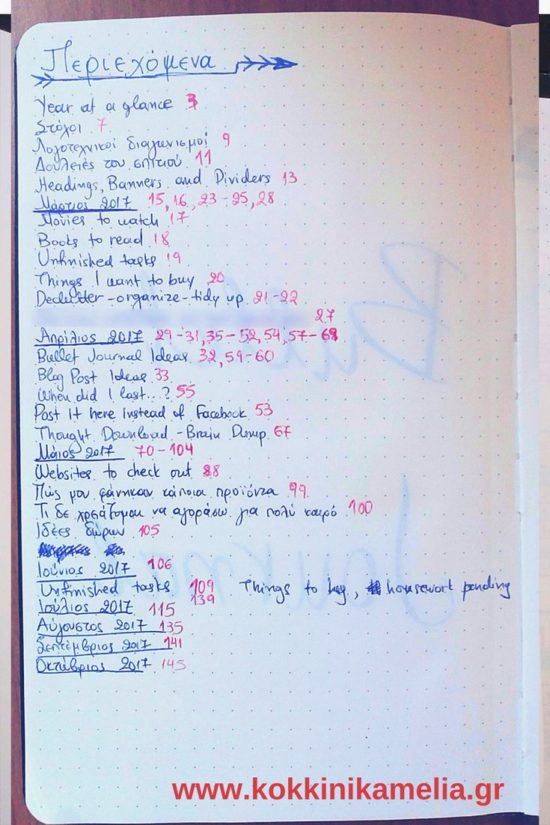 Περιεχόμενα
Year at a glance 3
Στόχοι 7
Λογοτεχνικοί διαγωνισμοί 9
Δουλειές του σπιτιού 11
Headings, Banners and Dividers 13
Μάρτιος 2017 15, 16, 23-25, 28
Movies to watch 17
Books to read 18
Unfinished tasks 19
Things I want to buy 20
Declutter-organize-tidy up 21-22
27
Απρίλιος 2017 29-31, 35-52, 54, 57-68
Bullet Journal Ideas 32, 59-60
Blog Post Ideas 33
When did I last...? 55
Post it here instead of Facebook 53
Thought Download-Brain Dump 67
Μάιος 2017 70-104
Websites to check out 88
Πώς μου φάνηκαν κάποια προϊόντα 99
Τι δε χρειάζομαι να αγοράσω για πολύ καιρό 100
Ιδέες δώρων 105
Ιούνιος 2017 106
Unfinished tasks 109 Things to buy, housework pending
139
Ιούλιος 2017 115
Αύγουστος 2017 135
Σεπτέμβριος 2017 141
Οκτώβριος 2017 145
www.kokkinikamelia.gr